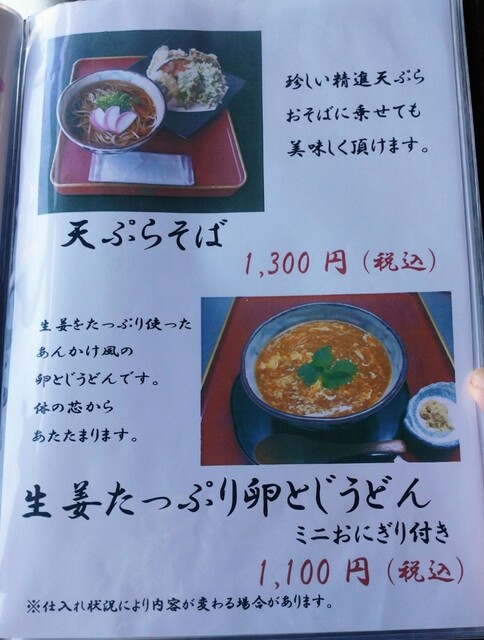 珍しい精進天ぷら
おそばに乗せても
美味しく頂けます。
天ぷらそば
1,300 円 (税込)
生姜をたっぷり使った
あんかけ風の
卵とじうどんです。
体の芯から
あたたまります。
生姜たっぷり卵とじうどん
ミニおにぎり付き
1,100 円 (税込)
※仕入れ状況により内容が変わる場合があります。